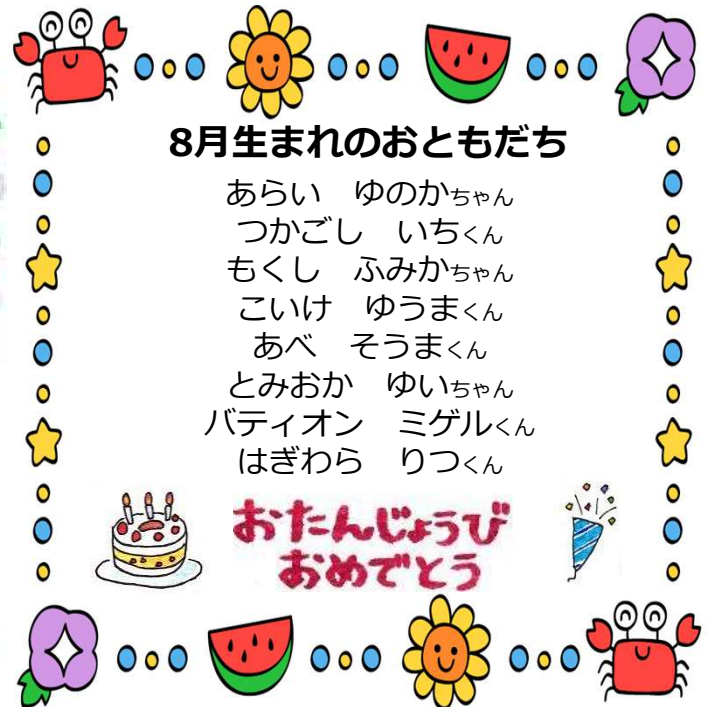 8月生まれのおともだち
あらい　ゆのかちゃん
つかごし　いちくん
もくし　ふみかちゃん
こいけ　ゆうまくん
あべ　そうまくん
とみおか　ゆいちゃん
バティオン　ミゲルくん
はぎわら　りつくん
おたんじょうび
おめでとう